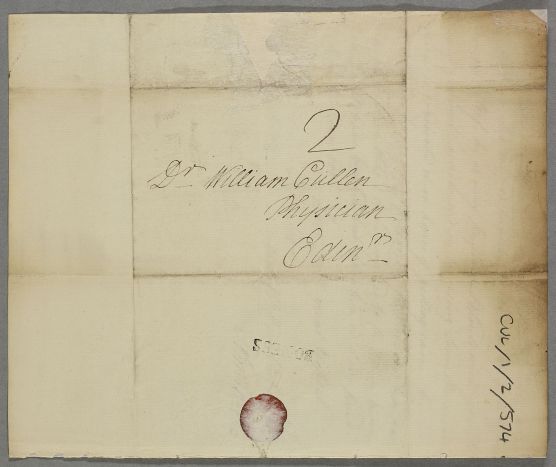 2
Dr William Cullen
Physician
Edinr
CUL/1/2/574